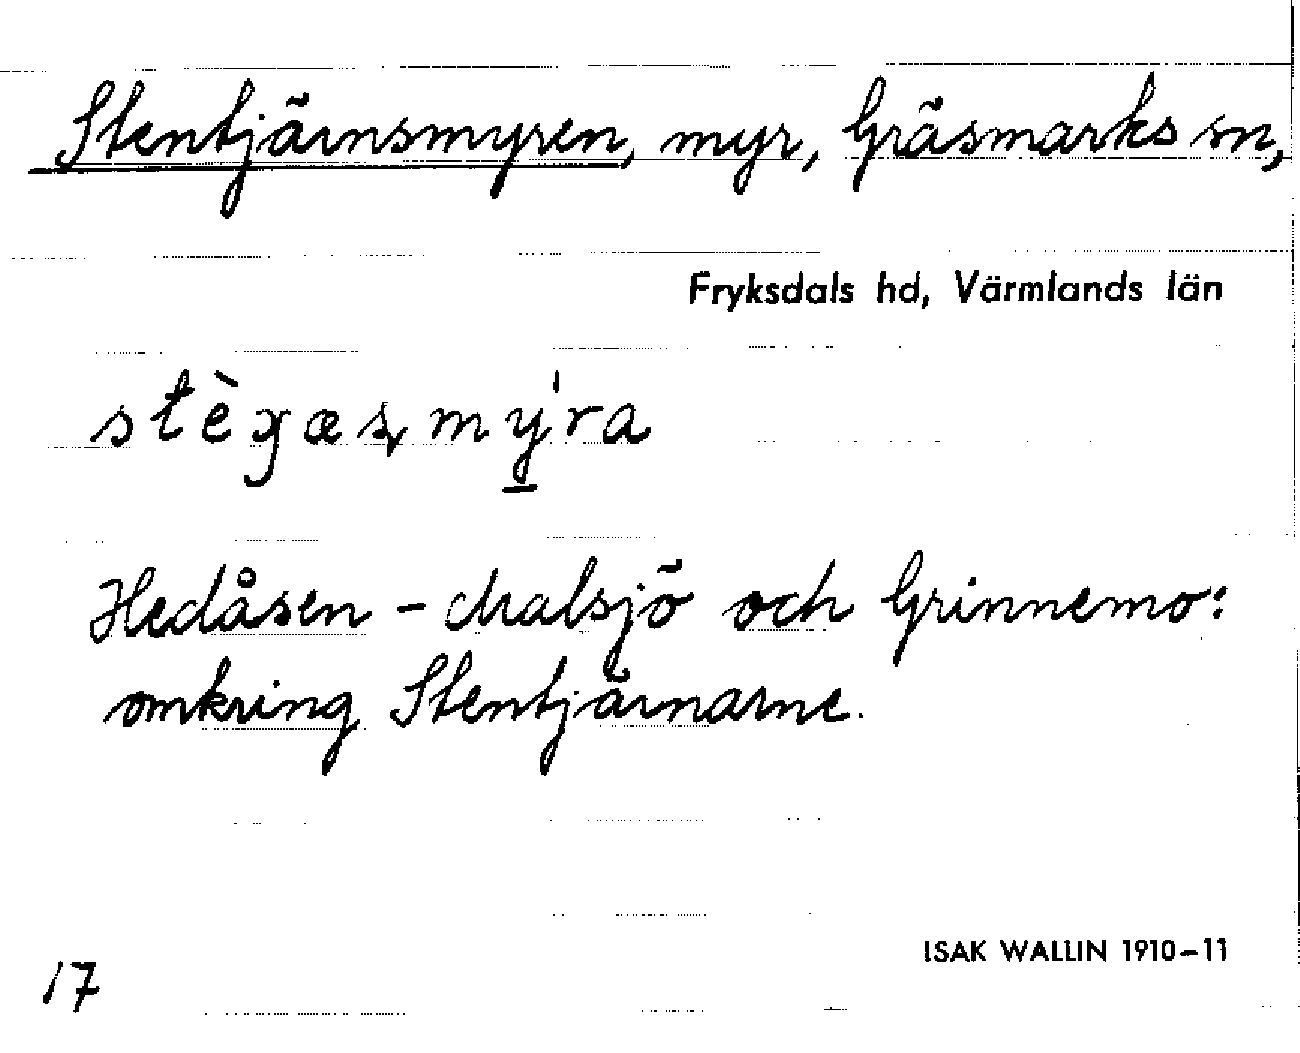 Stentjärnsmyren, myr, Gräsmarks sn,
Fryksdals hd, Värmlands län
Hedåsen - Malsjö och Grinnemo:
omkring Stentjärnarne.
ISAK WALLIN 1910-11
17